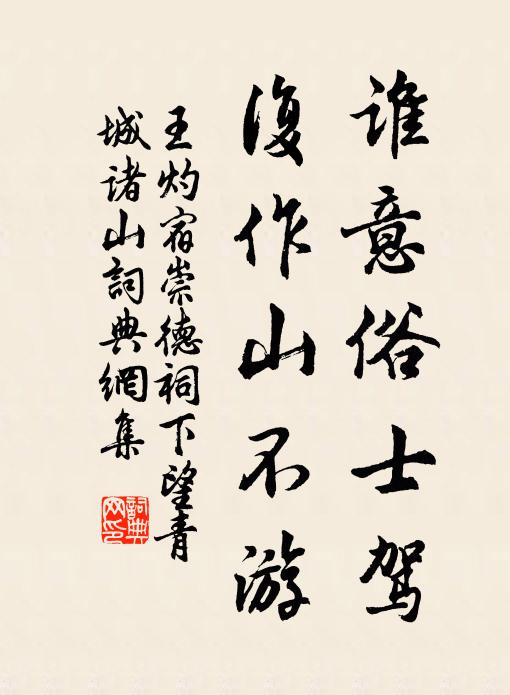 谁意俗士驾
復作山不游
王灼宿崇德祠下望青
城诸山詞典網集
詞典
网印